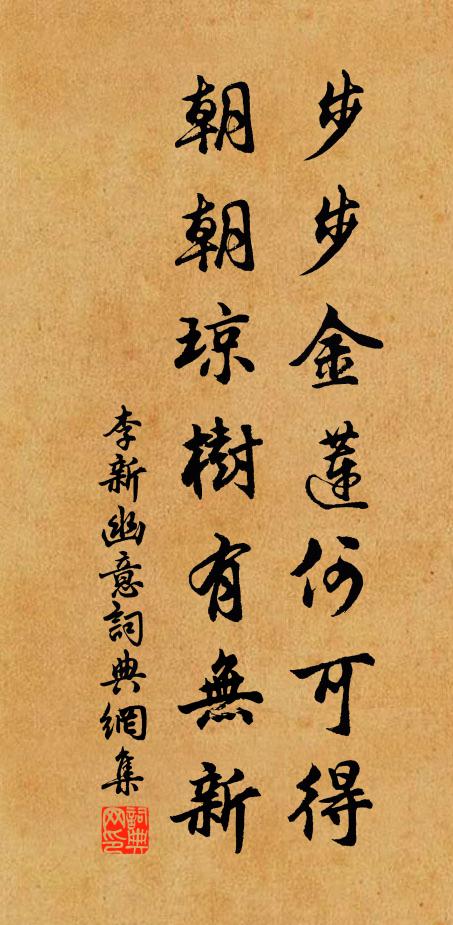 步步金蓮何可得
朝朝琼樹有無新
李新幽意詞典網集
詞典网印